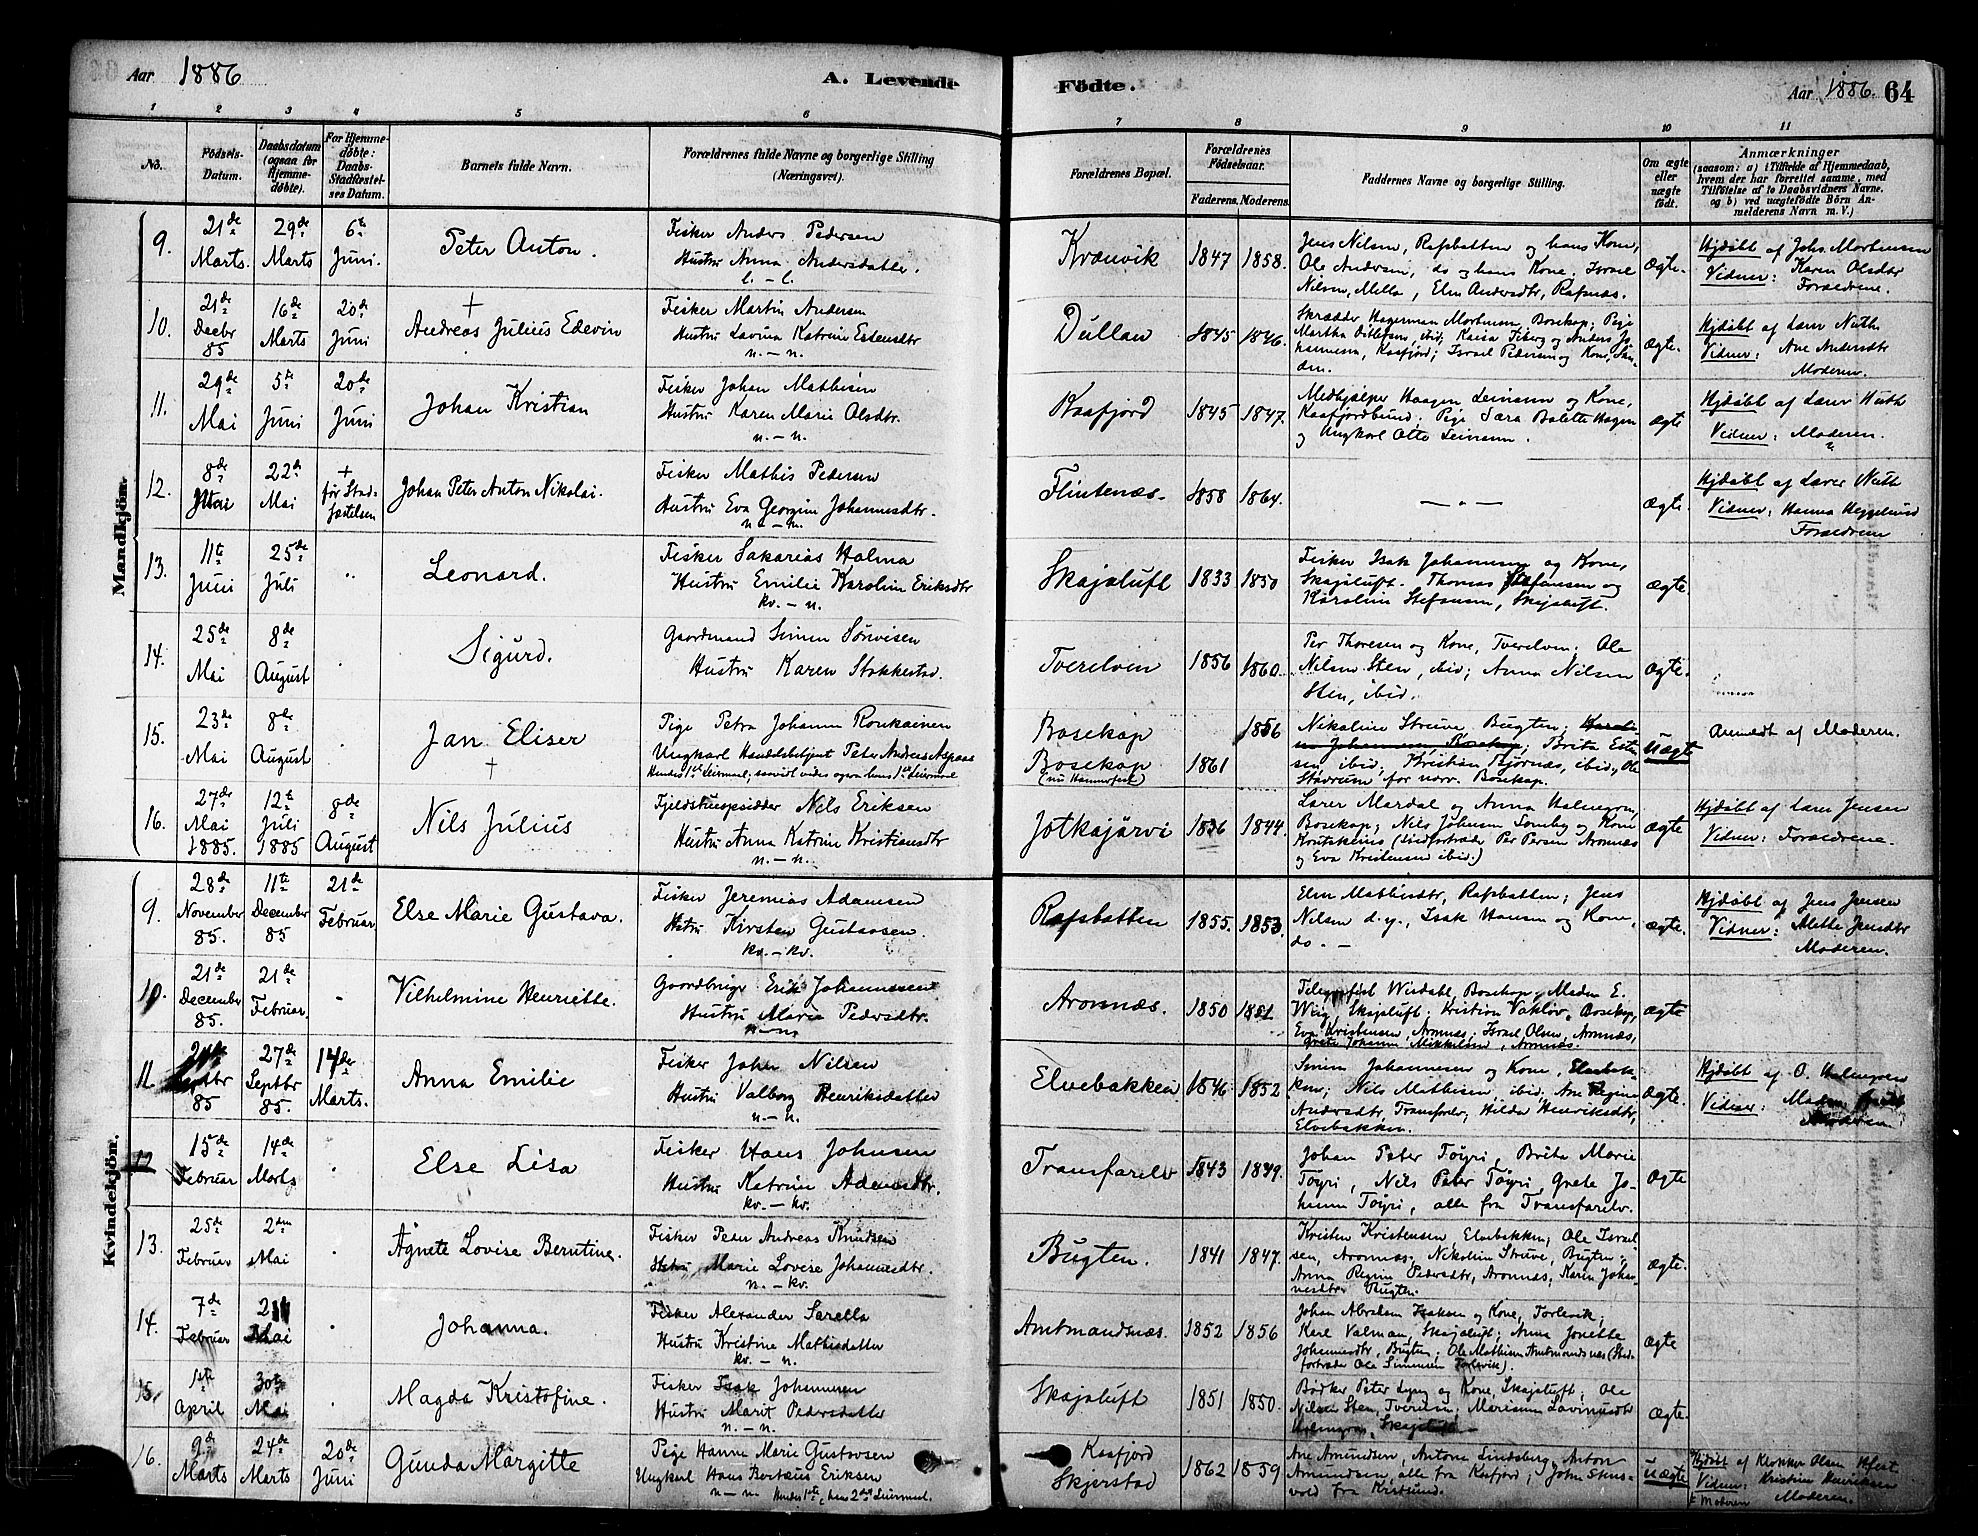 Aar 1886
A. Levende
Födte.
Aar 1886. 64
1 2 3 4 5 6 7 8 9 10 11
No.
Födsels-Datum.
Daabsdatum (ogsaa for Hjemme-döbte).
For Hjemme-döbte: Daabs-Stadfæstel-ses Datum.
Barnets fulde Navn.
Forældrenes fulde Navne og borgerlige Stilling (Næringsvei).
Forældrenes Bopæl.
Forældrenes Födselsaar.
Faderens. Moderens.
Faddernes Navne og borgerlige Stilling.
Om ægte eller uægte födt.
Anmærkninger
(saasom: a) i Tilfælde af Hjemmedaab, hvem der har forrettet samme, med Tilföielse af to Daabsvidners Navne. og b) ved uægtefödte Börn Anmelderens Navn m. V.)
Mandkjön.
9. 21de Marts. 29de Marts 6te Juni. Peter Anton. Fisker Anders Pedersen
Hustru Anna Andersdatter.
l. - l.
Kvænvik 1847 1858.
Jens Nilsen, Rafsbotten og hans Kone,
Ole Andersen, do og hans Kone. Israel
Nilsen, Mella, Elen Andersdtr, Rafsnæs.
ægte.
Hjdöbt af Johs. Mortensen
Vidner: Karen Olsdtr
Forældrene.
10. 21de Decbr 85 16de Marts 20de Juni + Andreas Julius Edevin
Fisker Martin Andersen
Hustru Lavina Katrine Estensdtr
n. - n.
Dullau 1845 1846.
Skrædder Hagerman Mortensen, Bosekop; Pige
ægte.
Hjdöbt af Lærer Nuth
Vidner: Ane Andersdtr
Moderen.
11. 29de Mai 5te Juni 20de Juni Johan Kristian
Fisker Johan Mathisen
Hustru Karen Marie Olsdtr.
n. - n.
Kaafjord 1845 1847.
Medhjælper Haagen Leinann og Kone,
Kaafjordbund; Pige Sara Bolette Hagen
og Ungkarl Otto Leinann.
ægte
Hjdöbt af Lærer Nuth
Vidner: Moderen.
12. 8de Mai 22de Mai + før Stad-fæstelsen Johan Peter Anton Nikolai.
Fisker Mathis Pedersen
Hustru Eva Georgine Johannesdtr.
n. - n.
Flintenæs. 1858 1864.
— " —
ægte.
Hjdöbt af Lærer Nuth
Vidner: Hanna Heggelund
Forældrene
13. 11te Juni 25de Juli " Leonard.
Fisker Sakarias Halma
Hustru Emilie Karoline Eriksdtr
kv. - n.
Skajaluft 1833 1850
Fisker Isak Johannesen og Kone,
Skajaluft. Thomas Stefansen og
Karoline Stefansen, Skajaluft.
ægte.
14. 25de Mai 8de August . Sigurd.
Gaardmand Simen Sörvisen
Hustru Karen Stokkestad.
Tverelven 1856 1860.
Per Thoresen og Kone, Tverelven; Ole
Nilsen Sten, ibid; Anna Nilsen
Sten, ibid.
ægte.
15. 23de Mai 8de August . Jan Eliser +
Pige Petra Johanne Ronkainen
Ungkarl Handelsbetjent Peter Andreas Aspaas
Bosekop 1856
Bosekop (nu Hammerfest) 1861
Nikoline Struve, Bugten;
Brita Esten-
sen ibid; Kristian Bjørnæs, ibid, Ole
uægte
Anmeldt af Moderen.
16. 27de Mai 1885. 12te Juli 1885 8de August Nils Julius
Fjeldstueopsidder Nils Eriksen
Hustru Anna Katrine Kristiansdtr
n. - n.
Jotkajärvi 1836 1844.
Lærer Mardal og Anna Halmgren,
Bosekop; Nils Johnsen Somby og Kone
og Eva Kristensen ibid.)
ægte
Hjdöbt af Lærer Jensen
Vidner: Forældrene.
Kvindekjön.
9. 28de November 85. 11te December 85 21de Februar Else Marie Gustava.
Fisker Jeremias Adamsen
Hustru Kirsten Gustavsen.
kv. - kv.
Rafsbotten 1855. 1853.
Elen Mathisdtr, Rafsbotten; Jens
Nilsen d. y., Isak Hansen og Kone,
do. —
ægte.
Hjdöbt af Jens Jensen
Vidner: Mette Jensdtr
Moderen.
10. 21de December 85. 21de Februar. - Vilhelmine Henriette.
Gaardbruger Erik Johannesen
Hustru Maria Pedersdtr.
n - n
Aronnæs. 1850 1851
Wisdahl, Bosekop, Madam E.
Wiig, Skajaluft; Kristian Vakløv, Bosekop,
Eva Kristensen, Aronnæs; Israel Olsen, Aronnæs,
Grete Johanne Mikkelsen, Aronnæs.
ægte
11. Septbr 85 27de Septbr 85. 14de Marts. Anna Emilie
Fisker Johan Nilsen
Hustru Valborg Henriksdatter
n - n.
Elvebakken 1846 1852
Simen Johannesen og Kone, Elvebak-
ken; Nils Mathisen, ibid, Ane Regine
Andersdtr, Transfarelv; Hilda Henriksdtr,
Elvebakken.
ægte.
Hjdöbt af O. Halmgren
Vidner: Madam
Moderen.
12 15de Februar 14de Marts . Else Lisa
Fisker Hans Johnsen
Hustru Katrine Adamsdtr.
kv. - kv.
Transfarelv 1843 1849.
Johan Peter Töyri, Brita Marie
Töyri, Nils Peter Töyri, Grete Jo-
hanne Töyri, alle fra Transfarelv.
ægte
13. 25de Februar 2den Mai . Agnete Lovise Berntine.
Fisker Peder Andreas Knudsen
Hustru Marie Lovise Johannesdtr.
n. - kv.
Bugten. 1841 1847.
Kristen Kristensen Elvebakken; Ole Israel-
sen, Aronnæs, Nikoline Struve, Bugten;
Anna Regine Pedersdtr, Aronnæs, Karen Johan-
nesdtr Bugten.
ægte.
14. 7de Februar Mai . Johanna.
Fisker Alexander Sarella
Hustru Kristine Mathisdatter
kv. - n.
Amtmandsnæs. 1852 1856
Johan Abraham Isaksen og Kone, Torlevik;
Karl Valman, Skajaluft; Anna Jonette
Johannesdtr, Bugten; Ole Mathisen Amtmandsnæs (Sted-
fortræder Ole Simmonsen Torlevik).
ægte
15. 1ste April 30te Mai . Magda Kristofine.
Fisker Isak Johannesen
Hustru Marit Pedersdatter
n. - n.
Skajaluft 1851 1850.
Bødker Peter Lyng og Kone, Skajaluft; Ole
Nilsen Sten, Tverelven; Lavinusdtr
Skajaluft
ægte.
16. 9de Marts 24de Marts 20de Juni Gunda Margitte
Pige Hanne Marie Gustavsen
Ungkarl Hans Bertæus Eriksen
n - n. Hendes 1ste, hans 2det Leiermaal.
Kaafjord
Skjerstad 1862 1859
Ane Amundsen, Antone Lindsberg, Anton
Amundsen, alle fra Kaafjord; John Stens-
vold fra Kristiansund.
uægte
Hjdöbt af Klokker Olsen
Vidner: Kristine Henriksen
Moderen.